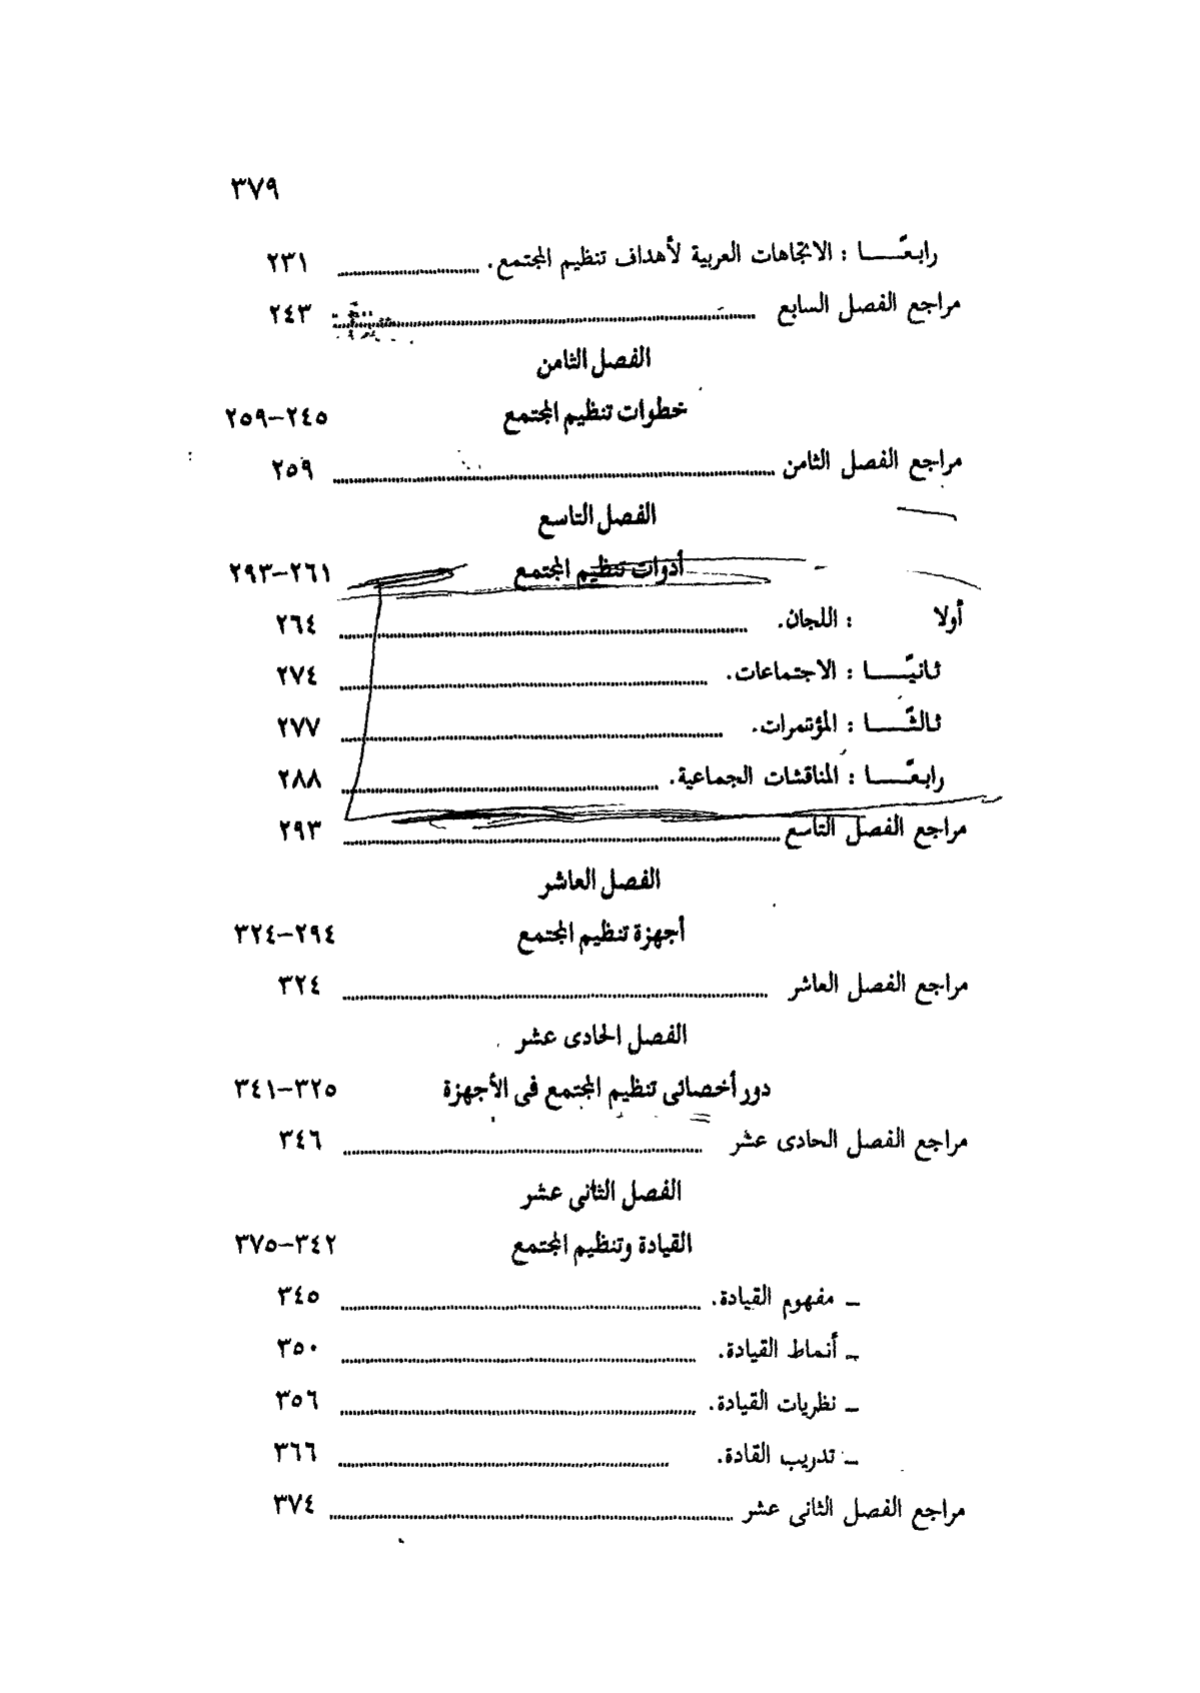 ٣٧٩
رابعًـــا : الاتجاهات العربية لأهداف تنظيم المجتمع. ٢٣١
مراجع الفصل السابع ٢٤٣
الفصل الثامن
خطوات تنظيم المجتمع ٢٤٥–٢٥٩
مراجع الفصل الثامن ٢٥٩
الفصل التاسع
أدوات تنظيم المجتمع ٢٦١–٢٩٣
أولا : اللجان. ٢٦٤
ثانيًـــا : الاجتماعات. ٢٧٤
ثالثًـــا : المؤتمرات. ٢٧٧
رابعًـــا : المناقشات الجماعية. ٢٨٨
مراجع الفصل التاسع ٢٩٣
الفصل العاشر
أجهزة تنظيم المجتمع ٢٩٤–٣٢٤
مراجع الفصل العاشر ٣٢٤
الفصل الحادى عشر
دور أخصائى تنظيم المجتمع فى الأجهزة ٣٢٥–٣٤١
مراجع الفصل الحادى عشر ٣٤٦
الفصل الثانى عشر
القيادة وتنظيم المجتمع ٣٤٢–٣٧٥
ـ مفهوم القيادة. ٣٤٥
ـ أنماط القيادة. ٣٥٠
ـ نظريات القيادة. ٣٥٦
ـ تدريب القادة. ٣٦٦
مراجع الفصل الثانى عشر ٣٧٤